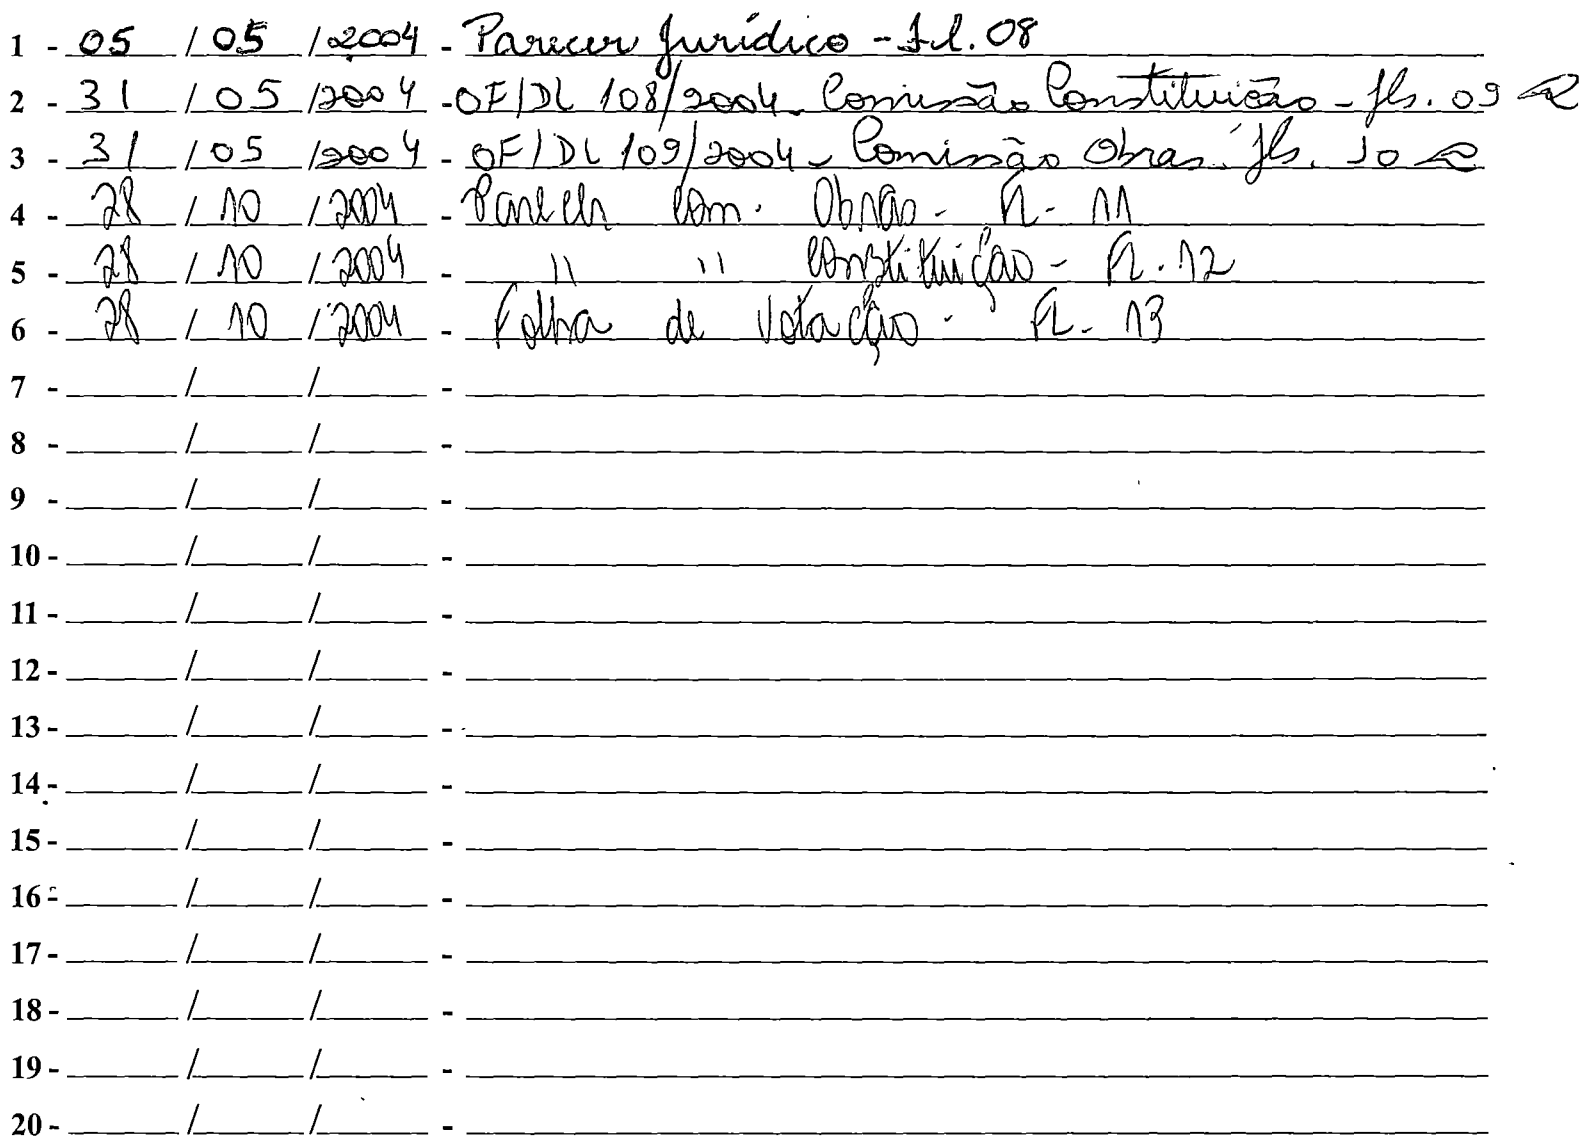 1 - 05 / 05 / 2004 - Parecer Jurídico - Fl. 08
2 - 31 / 05 / 2004 - OF/DL 108/2004 - Comissão Constituição - fls. 09
3 - 31 / 05 / 2004 - OF/DL 109/2004 - Comissão Obras. fls. 10
4 - 28 / 10 / 2004 - Parecer Com. Obras - Fl. 11
5 - 28 / 10 / 2004 - " " Constituição - Fl. 12
6 - 28 / 10 / 2004 - Folha de Votação - Fl. 13
7 - / / -
8 - / / -
9 - / / -
10 - / / -
11 - / / -
12 - / / -
13 - / / -
14 - / / -
15 - / / -
16 - / / -
17 - / / -
18 - / / -
19 - / / -
20 - / / -